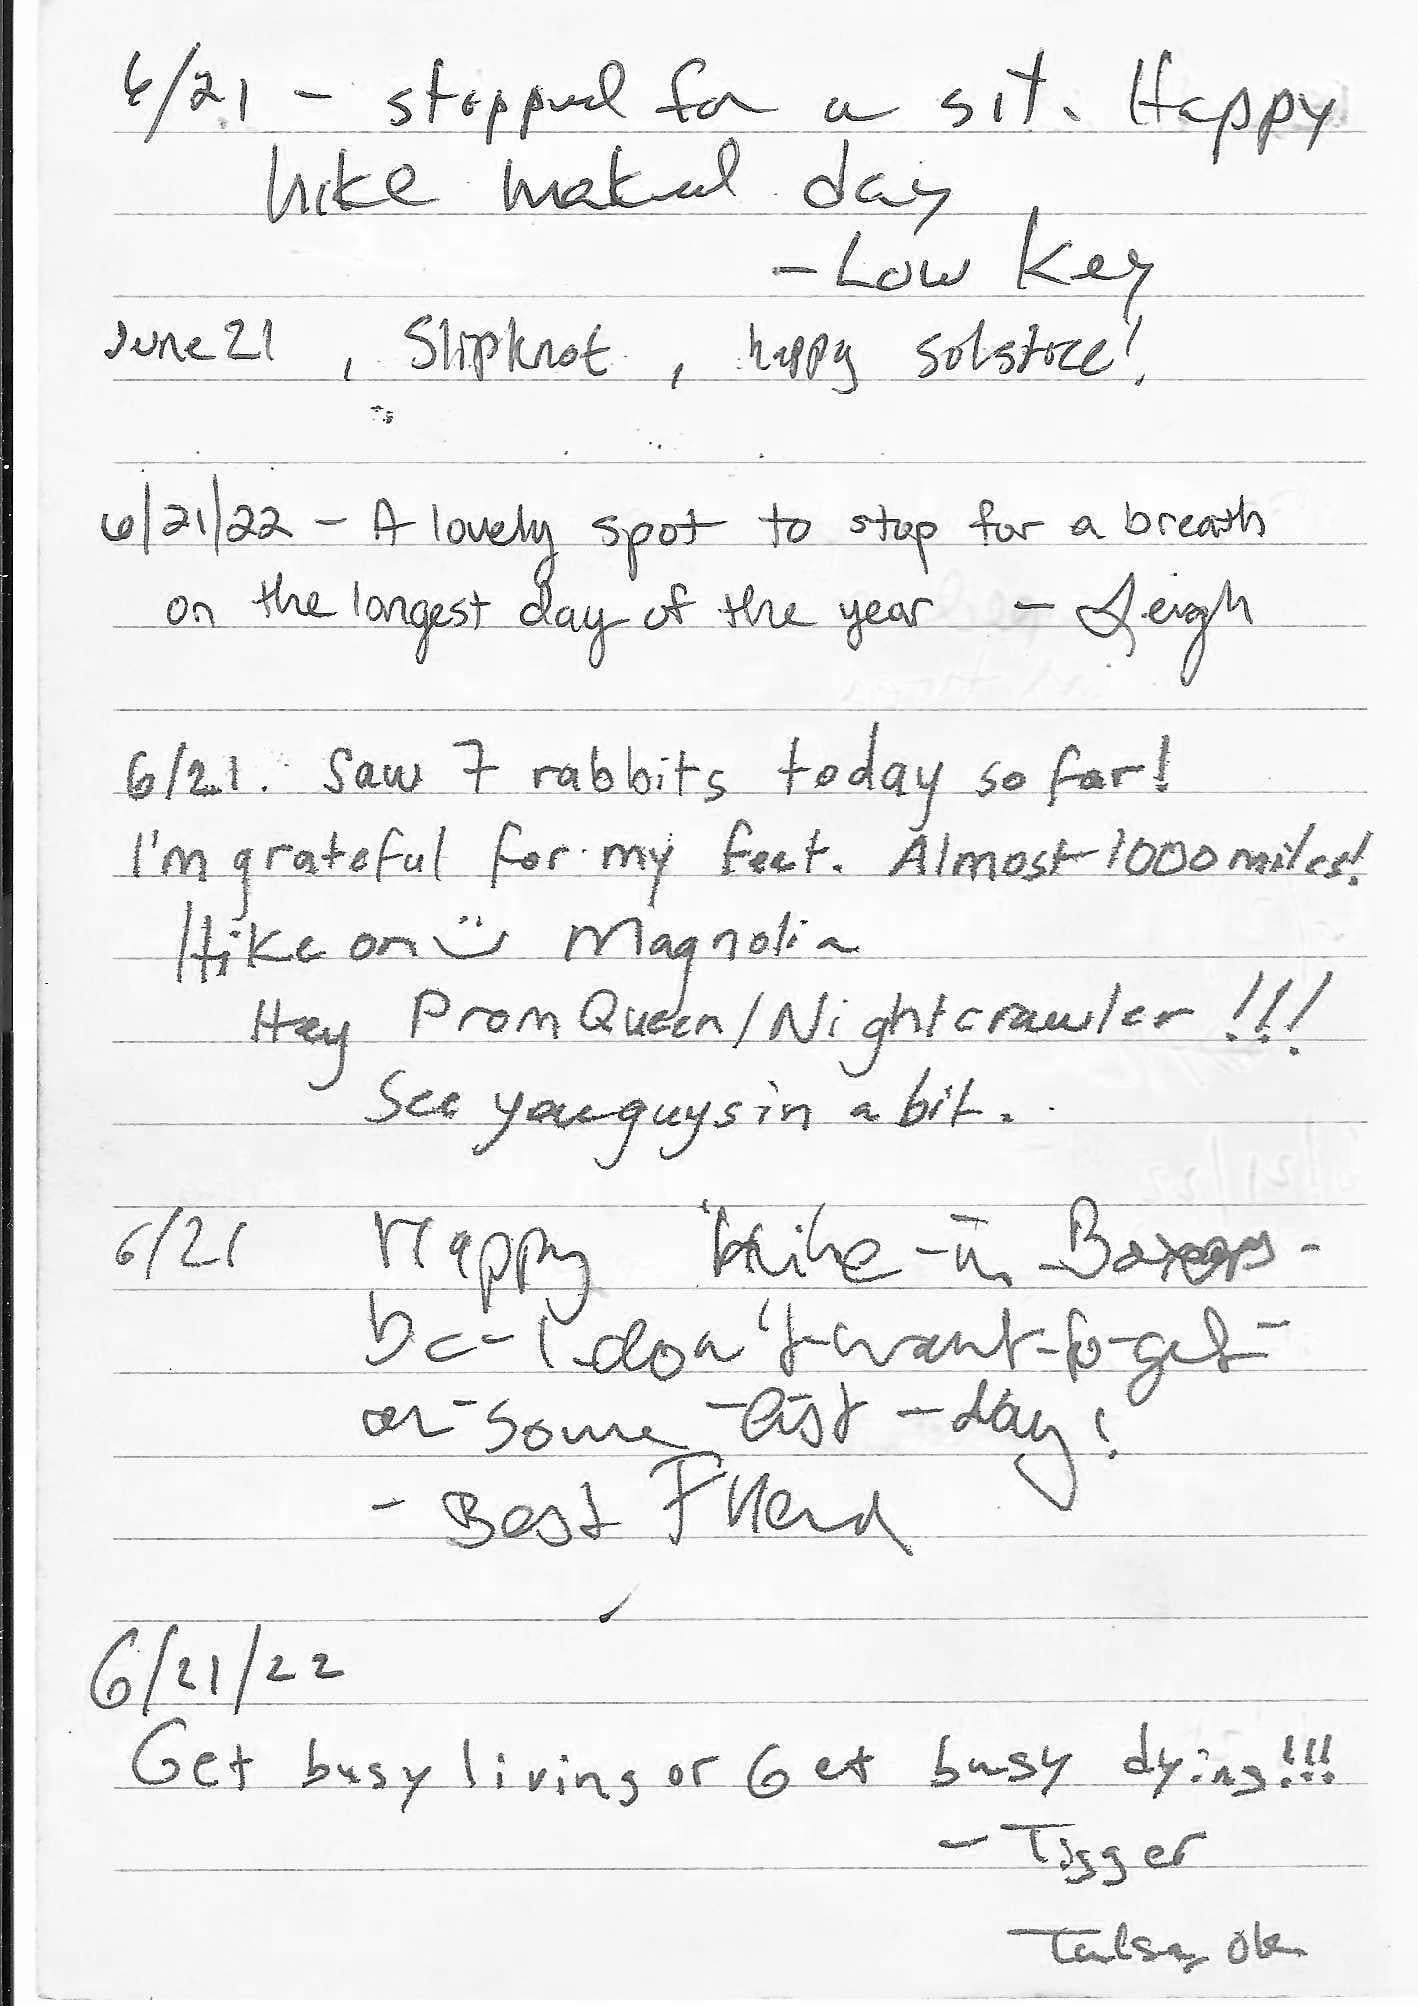 6/21 - stopped for a sit. Happy
hike naked day
- Low Key
June 21, Slipknot, happy solstice!
6/21/22 - A lovely spot to stop for a breath
on the longest day of the year - Leigh
6/21. Saw 7 rabbits today so far!
I'm grateful for my feet. Almost 1000 miles!
Hike on Magnolia
Hey Prom Queen/Nightcrawler !!!
See you guys in a bit.
6/21 Happy Hike-in-Boxers-
bc-I-don't-want-to-get-
on-some-list-day!
- Best Friend
6/21/22
Get busy living or Get busy dying!!!
- Tigger
Tulsa, Ok